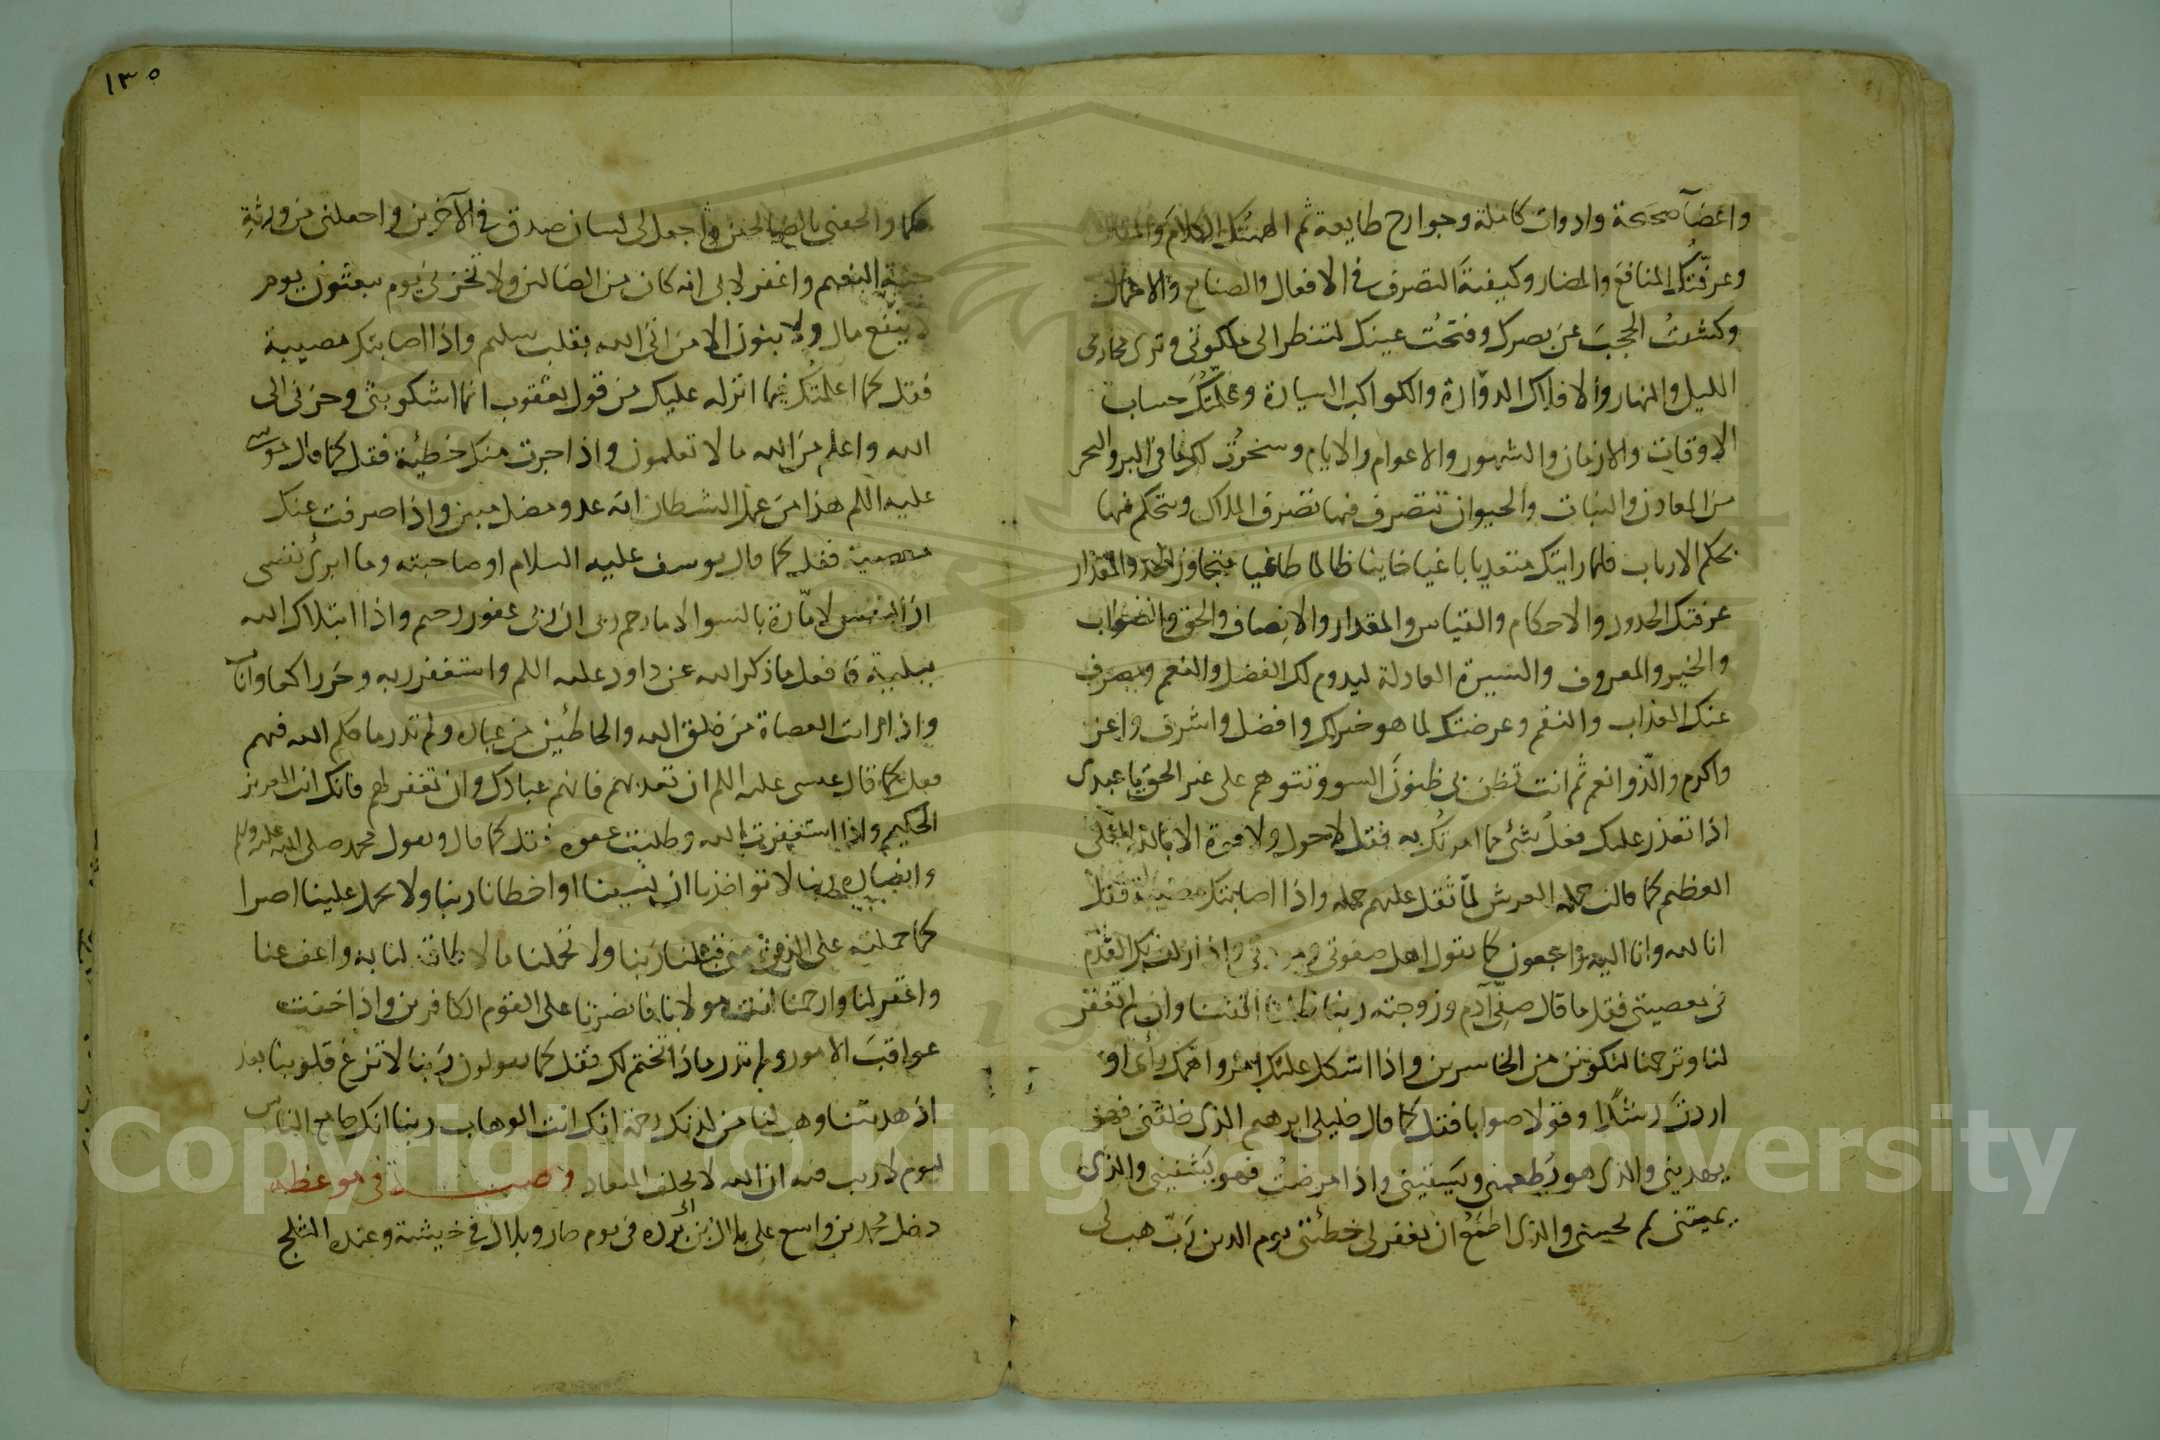 واعضآ صحيحة وادوات كاملة وجوارح طايعة ثم الهمتك الكلام والمقال
وعرّفتُك المنافع والمضار وكيفيةَ التصرف فى الافعال والصنايع والاعمال
وكشفتُ الحجبَ عن بصرك وفتحْت عينك لتنظر الى ملكوتى وترى مجارى
الليل والنهار والافلاك الدوّارة والكواكب السيارة وعلّمتُك حساب
الاوقات والازمان والشهور والاعوام والايام وسخرتُ لك ما فى البر والبحر
من المعادن والنبات والحيوان تتصرف فيها تصرف الملاك وتتحكم فيها
تحكم الارباب فلما رايتك متعديا باغيا خاينا ظالما طاغيا متجاوز الحد والمقدار
عرفتك الحدود والاحكام والقياس والمقدار والانصاف والحق والصواب
والخير والمعروف والسيرة العادلة ليدوم لك الفضل والنعم ويصرف
عنك العذاب والنقم وعرضتك لما هو خير لك وافضل واشرف واعز
واكرم والذّ وانعم ثم انت تظن بى ظنونَ السوو تتوهم على غير الحق يا عبدى
اذا تعذر عليك فعلُ شئ مما امرتُك به فقل لا حول ولا قوة الا بالله العلى
العظيم كما قالت حملة العرش لمّا ثقل عليهم حمله واذا اصابتك مصيبة فقل
انا لله وانا اليه راجعون كما يقول اهل صفوتى ومودتى واذا زلت بك القدم
فى معصيتى فقل ما قال صفىّ آدم وزوجته ربنا ظلمنا انفسنا وان لم تغفر
لنا وترحمنا لنكونن من الخاسرين واذا اشكل عليك امر واهمك رأى او
اردتَ رشدًا وقولا صوابا فقل كما قال خليلى ابرهيم الذى خلقنى فهو
يهدينى والذى هو يُطعمنى ويَسقينى واذا مرضتُ فهو يَشفينى والذى
يميتنى ثم يحيينى والذى اطمَعُ ان يغفر لى خطئتى يوم الدين رَبّ هب لى
١٣٥
حكما والحقنى بالصالحين واجعل لى لسان صدق فى الآخرين واجعلنى من ورثةِ
جنة النعيم واغفر لابى انه كان من الضالين ولا تخزنى يوم يبعثون يوم
لا ينفع مال ولا بنون الا من اتى الله بقلب سليم واذا اصابتك مصيبة
فقل كما اعلمتُك فيما انزله عليك من قول يعقوب انما اشكو بثى وحزنى الى
الله واعلم من الله ما لا تعلمون واذا جرت منك خطيئة فقل كما قال موسى
عليه اللم هذا من عمل الشيطان انه عدو مضل مبين واذا صرفت عنك
معصية فقل كما قال يوسف عليه السلام او صاحبته وما ابرئ نفسى
ان النفس لامّارة بالسوء الا ما رحم ربى ان ربى غفور رحيم واذا ابتلاك الله
ببلية فافعل ما ذكر الله عن داود عليه اللم واستغفر ربه وخر راكعا واناب
واذا رايت العصاة من خلق الله والخاطئين من عباده ولم تدر ما حكم الله فيهم
فقل كما قال عيسى عليه اللم ان تعذبهم فانهم عبادك وان تغفر لهم فانك انت العزيز
الحكيم واذا استغفرت الله وطلبت عفوه فقل كما قال ويقول محمد صلى الله عليه وسلم
وانصاره ربنا لا تواخذنا ان نسينا او اخطانا ربنا ولا تحمل علينا اصرا
كما حملته على الذين من قبلنا ربنا ولا تحملنا ما لا طاقة لنا به واعف عنا
واغفر لنا وارحمنا انت مولانا فانصرنا على القوم الكافرين واذا خفت
عواقبَ الامور ولم تدر ماذا يختم لك فقل كما يقولون ربنا لا تزغ قلوبنا بعد
اذ هديتنا وهب لنا من لدنك رحمة انك انت الوهاب ربنا انك جامع الناس
ليوم لا ريب فيه ان الله لا يخلف الميعاد وصية فى موعظه
دخل محمد بن واسع على بلال بن ابى برده فى يوم حار وبلال فى خيشة وعنده الثلج
Copyright © King Saud University